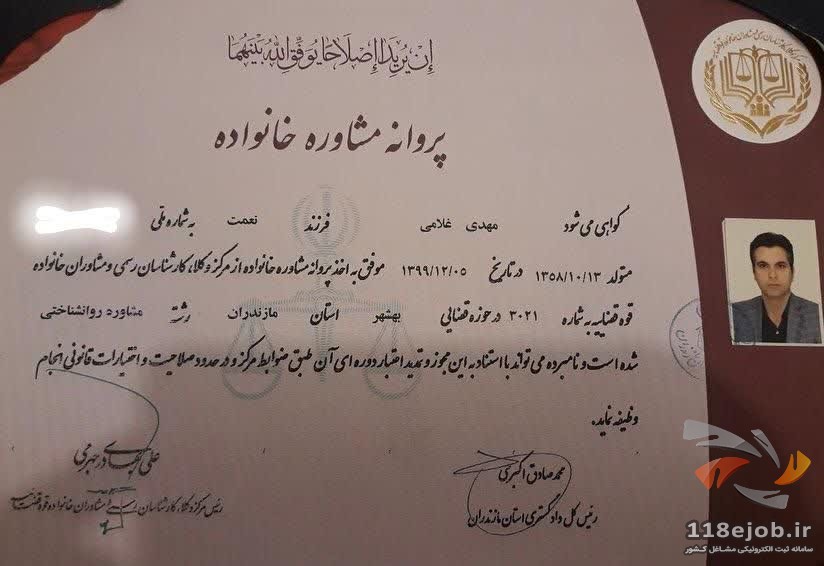 إن يريدا إصلاحا يوفق الله بينهما
پروانه مشاوره خانواده
گواهی می شود مهدی غلامی فرزند نعمت به شماره ملی
متولد ۱۳۵۸/۱۰/۱۳ در تاریخ ۱۳۹۹/۱۲/۰۵ موفق به اخذ پروانه مشاوره خانواده از مرکز وکلا، کارشناسان رسمی و مشاوران خانواده
قوه قضاییه به شماره ۳۰۲۱ در حوزه قضایی بهشهر استان مازندران رشته مشاوره روانشناختی
شده است و نامبرده می تواند با استناد به این مجوز و تمدید اعتبار دوره ای آن طبق ضوابط مرکز و در حدود صلاحیت و اختیارات قانونی انجام
وظیفه نماید.
محمد صادق اکبری
رئیس کل دادگستری استان مازندران
علی بهادری جهرمی
رئیس مرکز وکلا، کارشناسان رسمی و مشاوران خانواده قوه قضاییه
118ejob.ir
سامانه ثبت الکترونیکی مشاغل کشور